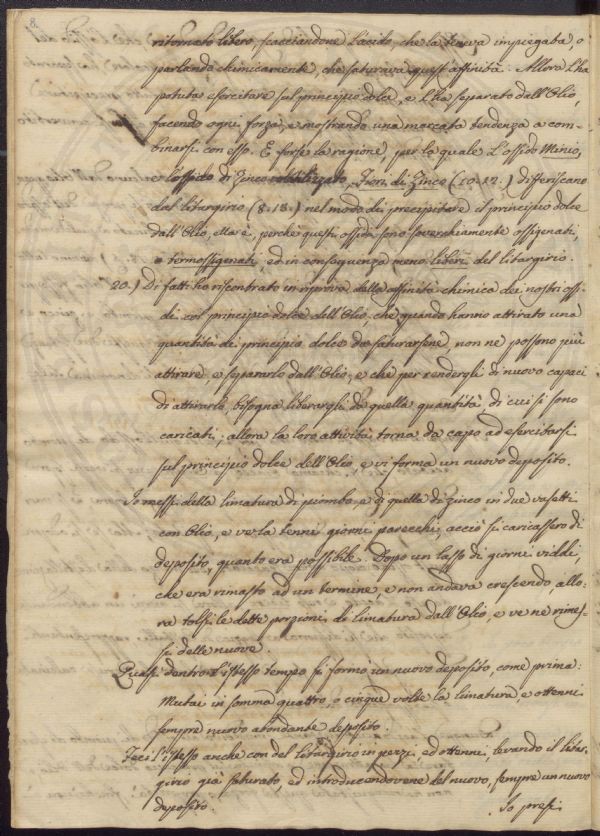 8.
ritornato libero, scacciandone l'acido, che la teneva impiegata, o
parlando chimicamente, che saturava quest'affinità. Allora l'ha
potuta esercitare sul principio dolce, e l'ha separato dall'Olio,
facendo ogni forza, e mostrando una marcata tendenza a com-
binarsi con esso. E forse la ragione, per la quale l'ossido Minio,
e l'ossido di Zinco, Fiori di Zinco (10.12.) differiscano
dal litargirio (8.18.) nel modo di precipitare il principio dolce
dall'Olio, ella è, perchè questi ossidi sono soverchiamente ossigenati,
o termossigenati, ed in conseguenza meno liberi del litargirio.
20.) Di fatti ho riscontrato in riprova della affinità chimica dei nostri ossi-
di col principio dolce dell'Olio, che quando hanno attirato una
quantità di principio dolce da saturarsene, non ne possono più
attirare, e separarlo dall'Olio, e che per rendergli di nuovo capaci
di attirarlo, bisogna liberargli da quella quantità, di cui si sono
caricati; allora la loro attività torna da capo ad esercitarsi
sul principio dolce dell'Olio, e vi forma un nuovo deposito.
Io messi della limatura di piombo, e di quella di Zinco in due vasetti
con Olio, e ve la tenni giorni parecchi, acciò si caricassero di
deposito, quanto era possibile. Dopo un lasso di giorni viddi,
che era rimasto ad un termine, e non andava crescendo, allo-
ra tolsi le dette porzioni di limatura dall'Olio, e ve ne rimes-
si delle nuove.
Quasi dentro l'istesso tempo si formò un nuovo deposito, come prima:
Mutai in somma quattro, o cinque volte la limatura, e ottenni
sempre nuovo abondante deposito.
Feci l'istesso anche con del litargirio in pezzi, ed ottenni, levando il litar-
girio già saturato, ed introducendovene del nuovo, sempre un nuovo
deposito. Io presi